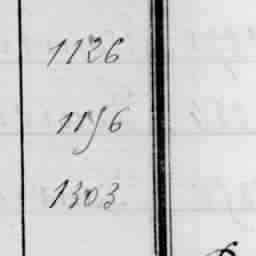 1126
1156
1303